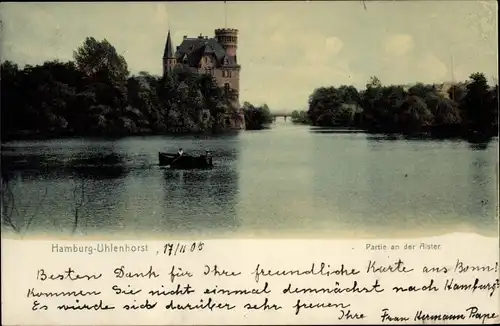 Hamburg-Uhlenhorst 17/11 05 Partie an der Alster
Besten Dank für Ihre freundliche Karte aus Bonn!
Kommen Sie nicht einmal demnächst nach Hamburg?
Es würde sich darüber sehr freuen
Ihre Frau Hermann Pape